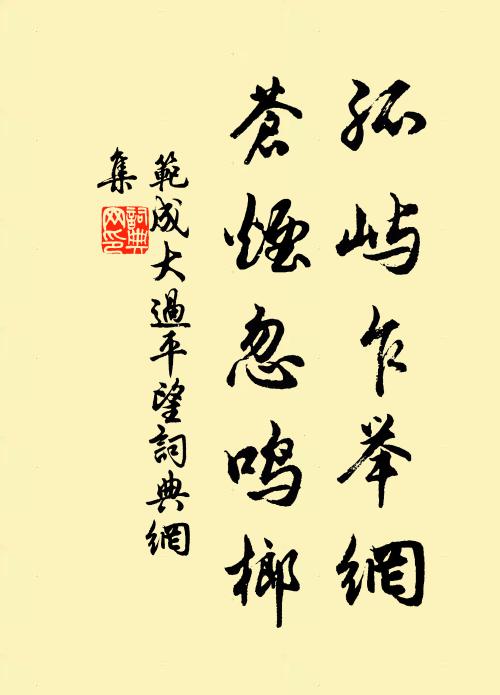 孤屿乍举網
蒼煙忽鸣榔
範成大過平望詞典網
集
詞典网印